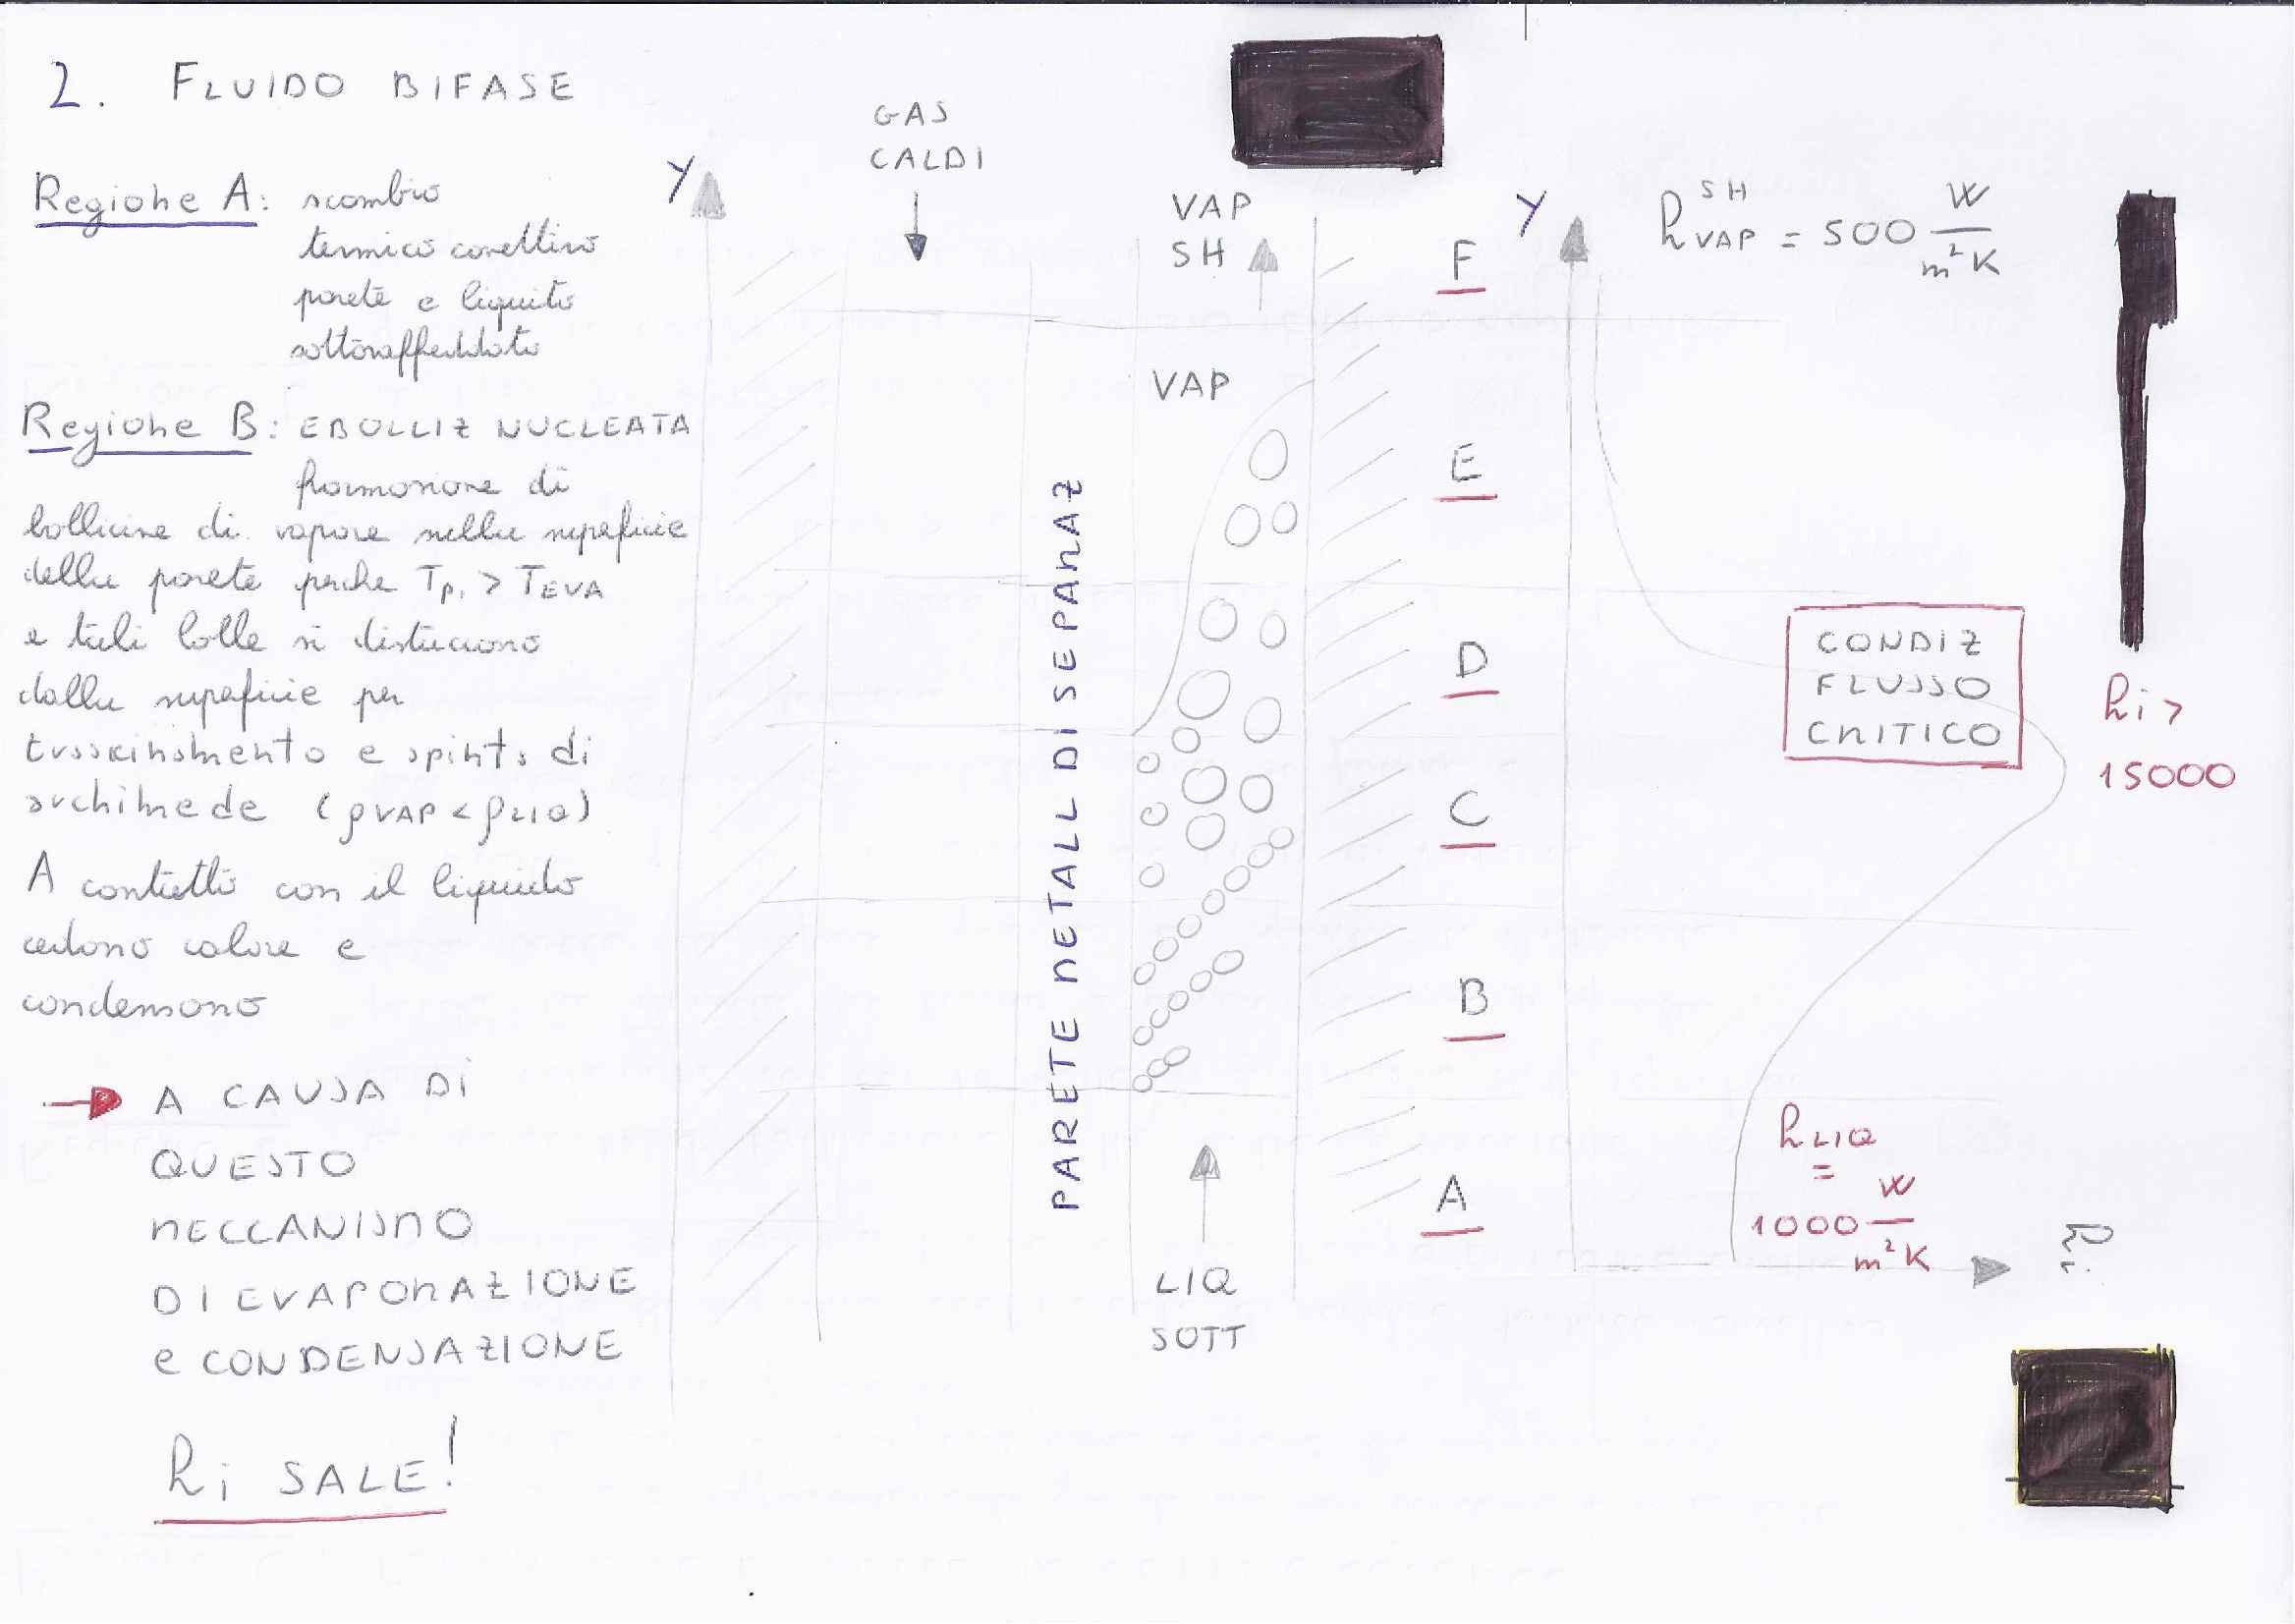 2. FLUIDO BIFASE
Regione A: scambio
termico conettivo
parete e liquito
sottoraffeddato
Regione B: EBOLLIZ NUCLEATA
formazione di
bollicine di vapore nella supeficie
della parete perche Tp,i > TEVA
e tali bolle si distaccono
dalla supeficie per
trascinamento e spinta di
archimede (ρVAP < ρLIQ)
A contatto con il liquido
cedono calore e
condensono
A CAUSA DI
QUESTO
MECCANISMO
DI EVAPORAZIONE
e CONDENSAZIONE
hi SALE!
Y
GAS
CALDI
VAP
SH
VAP
PARETE METALL DI SEPARAZ
LIQ
SOTT
F
E
D
C
B
A
Y
h VAP SH = 500 W/m²K
CONDIZ
FLUSSO
CRITICO
hi >
15000
hLIQ
=
1000 W/m²K
hi